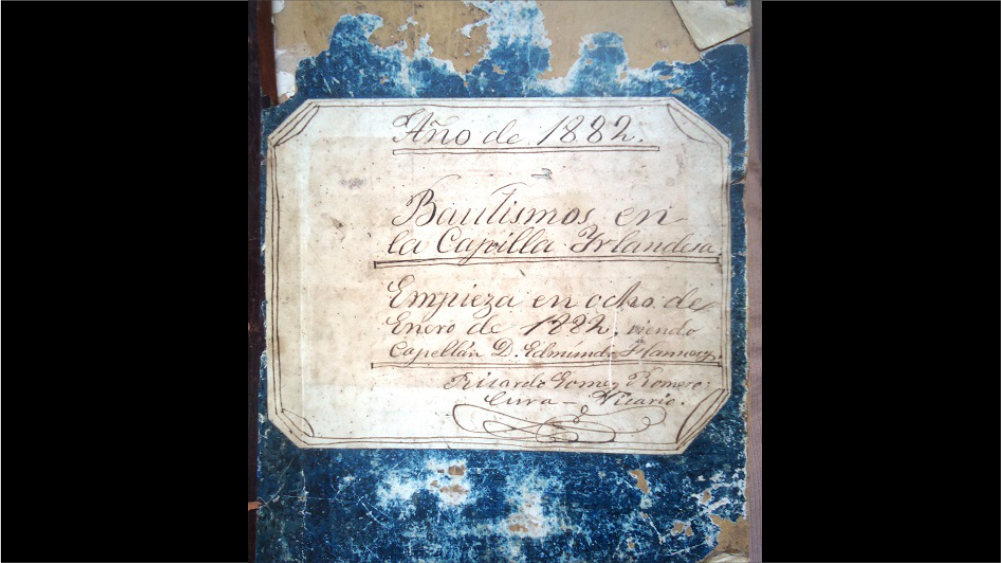 Año de 1882.
Bautismos en
la Capilla Yrlandesa
Empieza en ocho de
Enero de 1882. siendo
Capellán D. Edmundo Flannery.
Ricardo Gomez Romero:
Cura – Vicario.